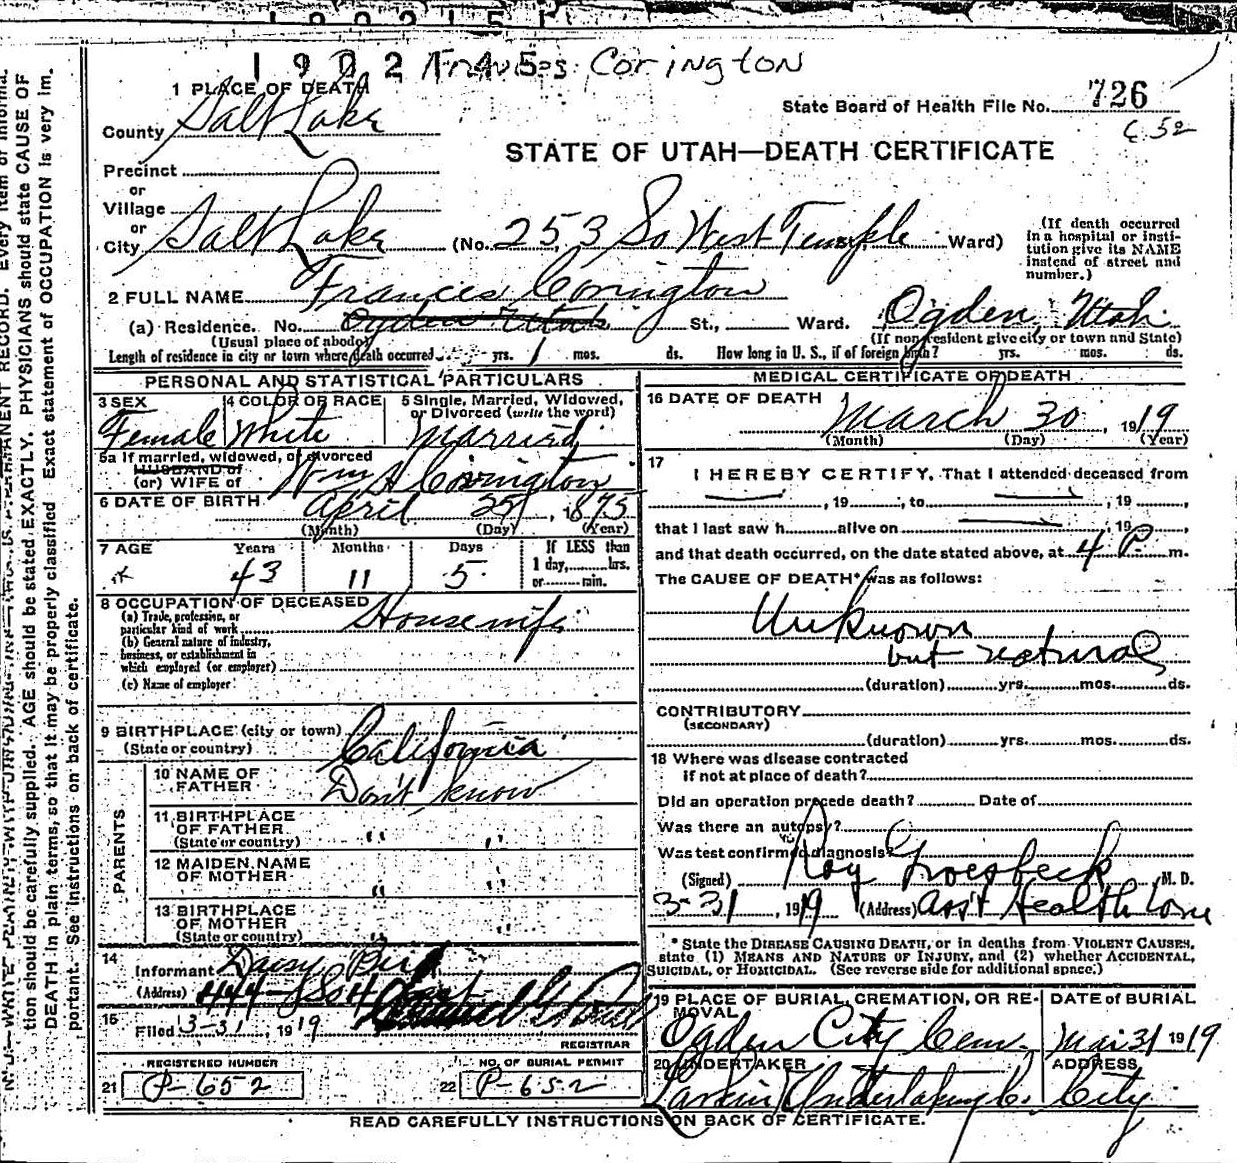 1902145 Frances Corington
1 PLACE OF DEATH
County Salt Lake
State Board of Health File No. 726
C. 52
STATE OF UTAH—DEATH CERTIFICATE
Precinct
or
Village
or
City Salt Lake (No. 253 So West Temple Ward)
(If death occurred in a hospital or institution give its NAME instead of street and number.)
2 FULL NAME Frances Corington
(a) Residence. No. Ogden Utah St., Ward. Ogden, Utah
(Usual place of abode) (If nonresident give city or town and State)
Length of residence in city or town where death occurred yrs. 1 mos. ds. How long in U. S., if of foreign birth? yrs. mos. ds.
PERSONAL AND STATISTICAL PARTICULARS
3 SEX Female
4 COLOR OR RACE White
5 Single, Married, Widowed, or Divorced (write the word) Married
5a If married, widowed, or divorced
HUSBAND of
(or) WIFE of Wm H Corington
6 DATE OF BIRTH April 25, 1875
(Month) (Day) (Year)
7 AGE Years Months Days If LESS than
43 11 5 1 day, hrs.
or min.
8 OCCUPATION OF DECEASED
(a) Trade, profession, or particular kind of work Housewife
(b) General nature of industry, business, or establishment in which employed (or employer)
(c) Name of employer
9 BIRTHPLACE (city or town)
(State or country) California
PARENTS
10 NAME OF FATHER Don't know
11 BIRTHPLACE OF FATHER (State or country) " "
12 MAIDEN NAME OF MOTHER " "
13 BIRTHPLACE OF MOTHER (State or country) " "
14
Informant Daisy
(Address) 444
15
Filed 3-31, 1919
REGISTRAR
REGISTERED NUMBER
21 P-652
NO. OF BURIAL PERMIT
22 P-652
MEDICAL CERTIFICATE OF DEATH
16 DATE OF DEATH March 30, 1919
(Month) (Day) (Year)
17
I HEREBY CERTIFY, That I attended deceased from
, 19 , to , 19 ,
that I last saw h alive on , 19 ,
and that death occurred, on the date stated above, at 4 P. m.
The CAUSE OF DEATH* was as follows:
Unknown
but natural
(duration) yrs. mos. ds.
CONTRIBUTORY
(SECONDARY)
(duration) yrs. mos. ds.
18 Where was disease contracted
if not at place of death?
Did an operation precede death? Date of
Was there an autopsy?
Was test confirmed diagnosis?
(Signed) Roy Groesbeck, M. D.
3-31, 1919 (Address) Ass't Health Com
* State the DISEASE CAUSING DEATH, or in deaths from VIOLENT CAUSES,
state (1) MEANS AND NATURE OF INJURY, and (2) whether ACCIDENTAL,
SUICIDAL, or HOMICIDAL. (See reverse side for additional space.)
19 PLACE OF BURIAL, CREMATION, OR REMOVAL
Ogden City Cem.
DATE of BURIAL
Mar 31 1919
20 UNDERTAKER
Larkin Undertaking Co.
ADDRESS
City
READ CAREFULLY INSTRUCTIONS ON BACK OF CERTIFICATE.
tion should be carefully supplied. AGE should be stated EXACTLY. PHYSICIANS should state CAUSE OF
DEATH in plain terms, so that it may be properly classified. Exact statement of OCCUPATION is very im-
portant. See instructions on back of certificate.